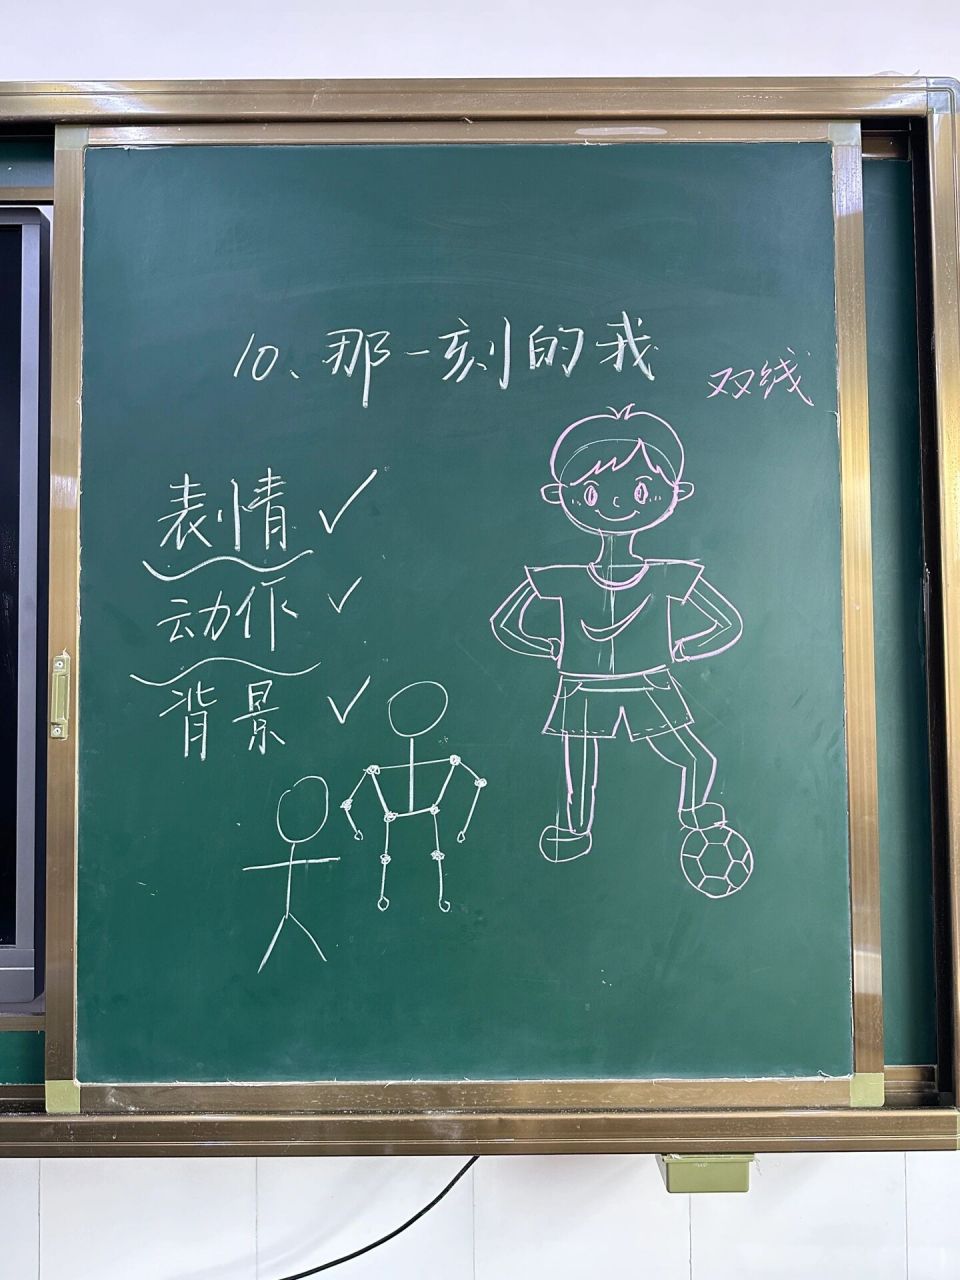 10、那一刻的我
双线
表情 ✓
动作 ✓
背景 ✓